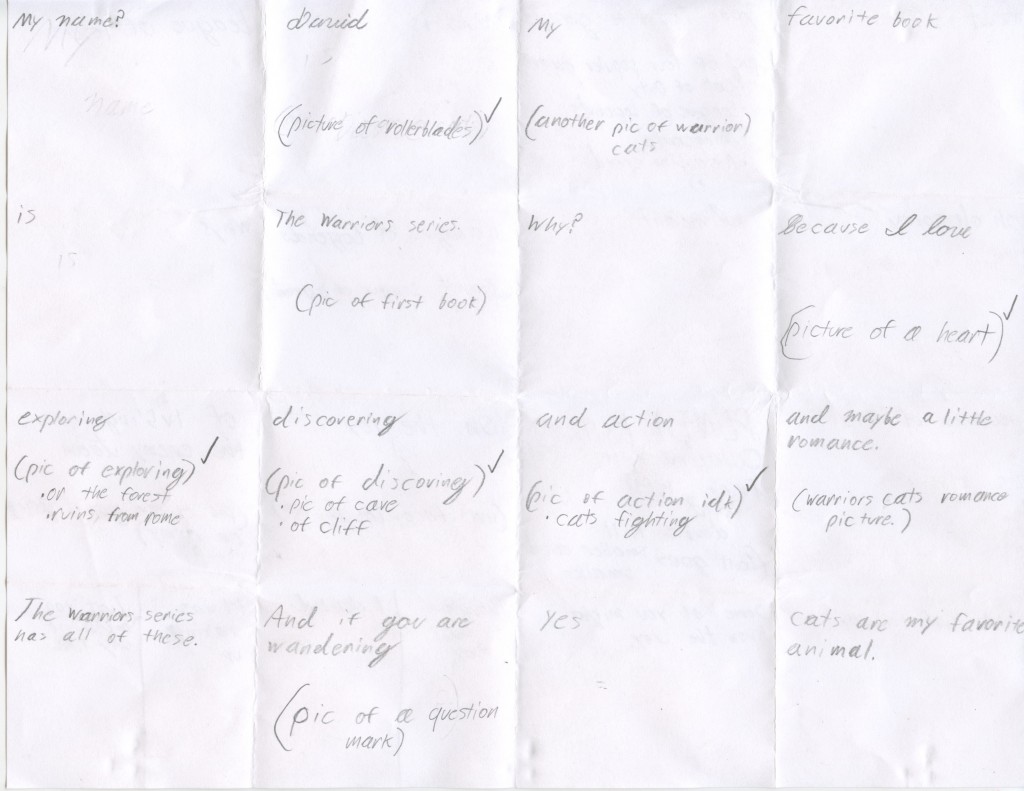 My name?
(picture of rollerblades)✓
My
(another pic of warrior)
cats
favorite book
is
The Warriors series.
(pic of first book)
Why?
Because I love
(picture of a heart)✓
exploring
(pic of exploring)✓
·or the forest
·ruins from rome
discovering
(pic of discovineg)✓
·pic of cave
·of cliff
and action
(pic of action idk)✓
·cats fighting
and maybe a little
romance.
(warriors cats romance
picture.)
The warriors series
has all of these.
And if you are
wandering
(pic of a question
mark)
yes
cats are my favorite
animal.